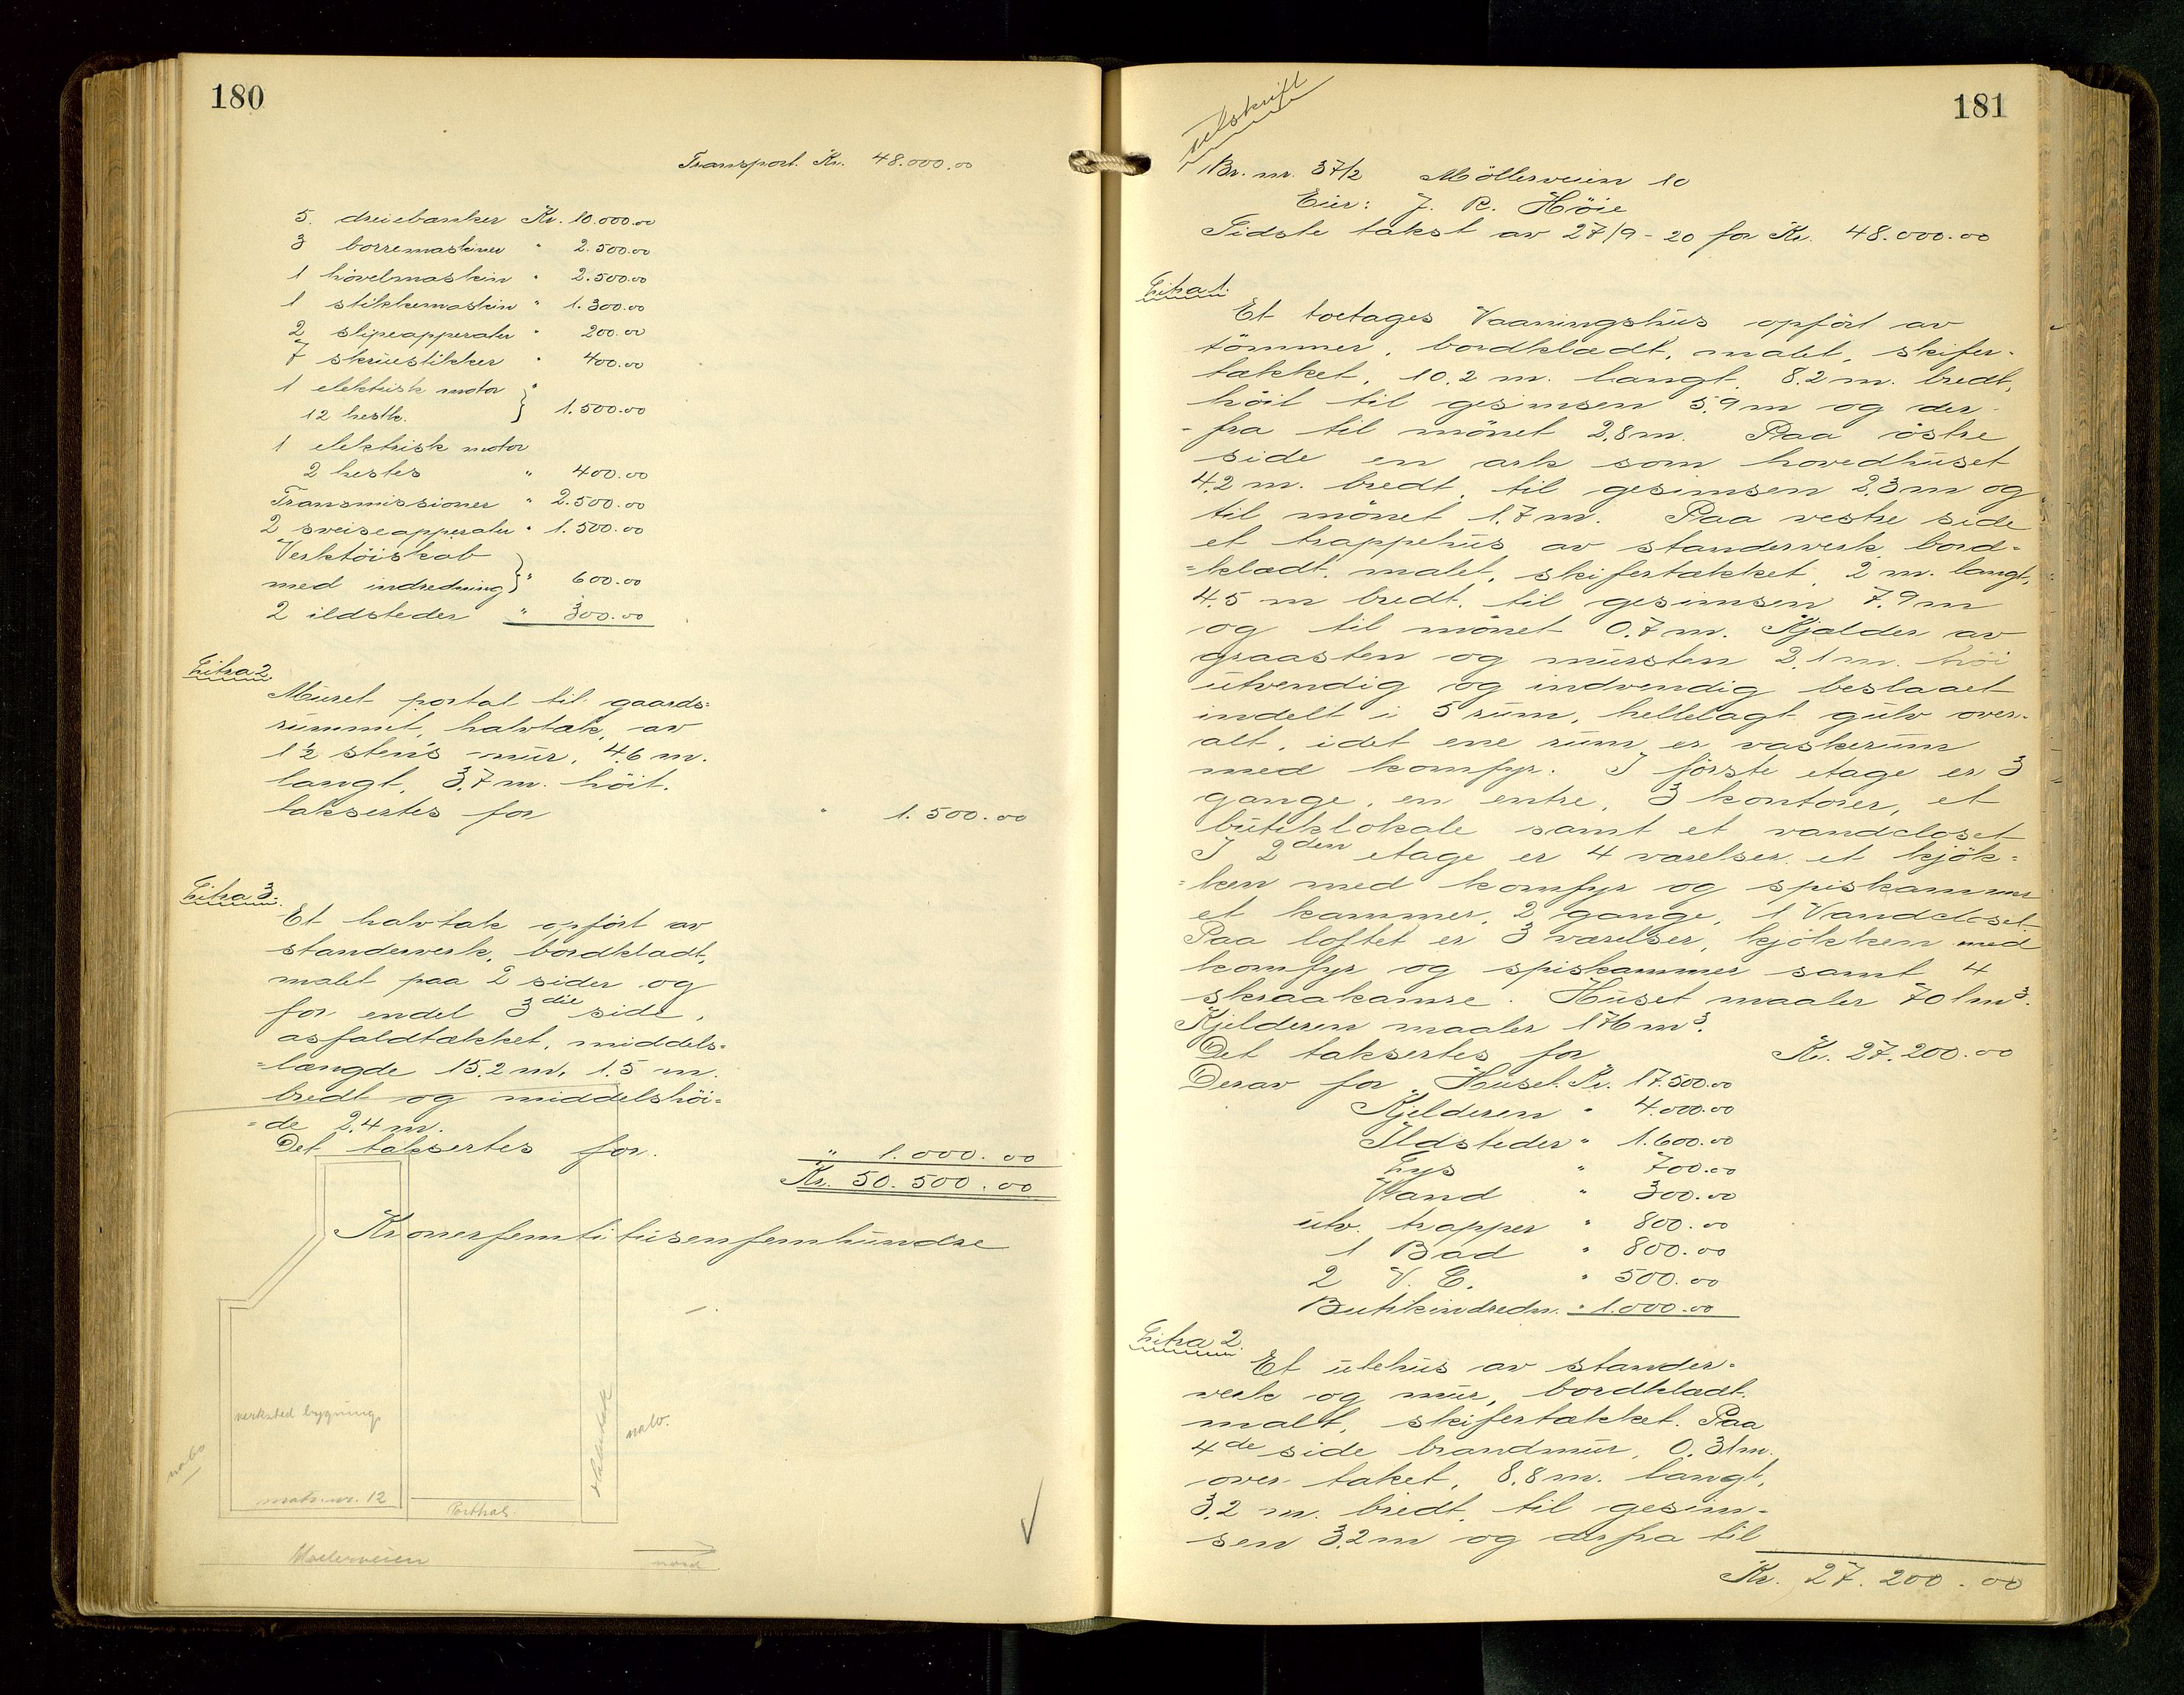 180
Transport. Kr. 48.000.00
5. dreiebanker Kr. 10.000.00
3 borremaskiner " 2.500.00
1 hövelmaskin " 2.500.00
1 stikkemaskin " 1.300.00
2 slipeapperater " 200.00
7 skruestikker " 400.00
1 elektrisk motor "
12 hestk. } 1.500.00
1 elektrisk motor
2 hestes " 400.00
Transmissioner " 2.500.00
2 sveiseapperater " 1.500.00
Verktöiskab
med indredning } " 600.00
2 ildsteder " 300.00
Litra 2.
Muret portal til gaards=
rummet, halvtak, av
1½ stens mur, 4,6 m.
langt, 3,7 m. höit.
taksertes for " 1.500.00
Litra 3.
Et halvtak opfört av
standerverk, bordklædt,
malt paa 2 sider og
for endel 3die side,
asfaldtækket, middels=
=længde 15,2 m, 1,5 m.
bredt og middelshöi=
=de 2,4 m.
Det taksertes for. " 1.000.00
Kr. 50.500.00
Kronerfemtitusenfemhundre
verksted bygning
nabo
matr. nr. 12
Porthal.
nabo.
Møllerveien
nord
181
utskrift
Br. nr. 37/2 Möllerveien 10
Eier: J. R. Höie
Sidste takst av 27/9-20 for Kr. 48.000.00
Litra 1.
Et toetages Vaaningshus opfört av
tömmer, bordklædt, malet, skifer-
tækket, 10,2 m. langt, 8,2 m. bredt,
höit til gesimsen 5,9 m og der-
-fra til mönet 2,8 m. Paa östre
side en ark som hovedhuset
4,2 m. bredt, til gesimsen 2,3 m og
til mönet 1,7 m. Paa vestre side
et trappehus av standerverk, bord=
=klædt, malet, skifertækket, 2 m. langt,
4,5 m bredt, til gesimsen 7,9 m
og til mönet 0,7 m. Kjælder av
graasten og mursten 2,1 m. höi
utvendig og indvendig beslaaet
indelt i 5 rum, hellelagt gulv over-
alt, idet ene rum er vaskerum
med komfyr. I förste etage er 3
gange, en entre, 3 kontorer, et
butiklokale samt et vandcloset
I 2den etage er 4 værelser, et kjök=
=ken med komfyr og spiskammer
et kammer, 2 gange, 1 Vandcloset
Paa loftet er 3 værelser, kjökken med
komfyr og spiskammer samt 4
skraakamre. Huset maaler 701 m³.
Kjelderen maaler 176 m³.
Det taksertes for Kr. 27.200.00
Derav for Huset. Kr. 17.500.00
Kjelderen " 4.000.00
Ildsteder " 1.600.00
Lys " 700.00
Vand " 300.00
utv. trapper " 800.00
1 Bad " 800.00
2 V. C. " 500.00
Butikindredn. " 1.000.00
Litra 2.
Et utehus av stander-
verk og mur, bordklædt.
malt, skifertækket. Paa
4de side brandmur, 0,31 m.
over taket, 8,8 m. langt,
3,2 m. bredt, til gesim-
sen 3,2 m og derfra til
Kr. 27.200.00